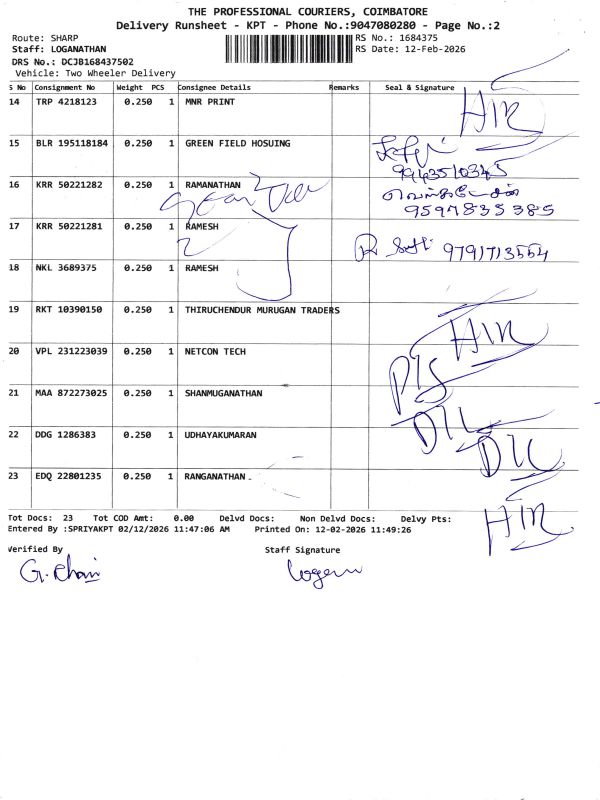 THE PROFESSIONAL COURIERS, COIMBATORE
Delivery Runsheet - KPT - Phone No.:9047080280 - Page No.:2
Route: SHARP
RS No.: 1684375
Staff: LOGANATHAN
RS Date: 12-Feb-2026
DRS No.: DCJB168437502
Vehicle: Two Wheeler Delivery
S No Consignment No Weight PCS Consignee Details Remarks Seal & Signature
14 TRP 4218123 0.250 1 MNR PRINT
15 BLR 195118184 0.250 1 GREEN FIELD HOSUING
16 KRR 50221282 0.250 1 RAMANATHAN
வெங்கடேசன்
9597835385
17 KRR 50221281 0.250 1 RAMESH
9791713554
18 NKL 3689375 0.250 1 RAMESH
19 RKT 10390150 0.250 1 THIRUCHENDUR MURUGAN TRADERS
20 VPL 231223039 0.250 1 NETCON TECH
21 MAA 872273025 0.250 1 SHANMUGANATHAN
22 DDG 1286383 0.250 1 UDHAYAKUMARAN
23 EDQ 22801235 0.250 1 RANGANATHAN.
Tot Docs: 23 Tot COD Amt: 0.00 Delvd Docs: Non Delvd Docs: Delvy Pts:
Entered By :SPRIYAKPT 02/12/2026 11:47:06 AM Printed On: 12-02-2026 11:49:26
Verified By Staff Signature